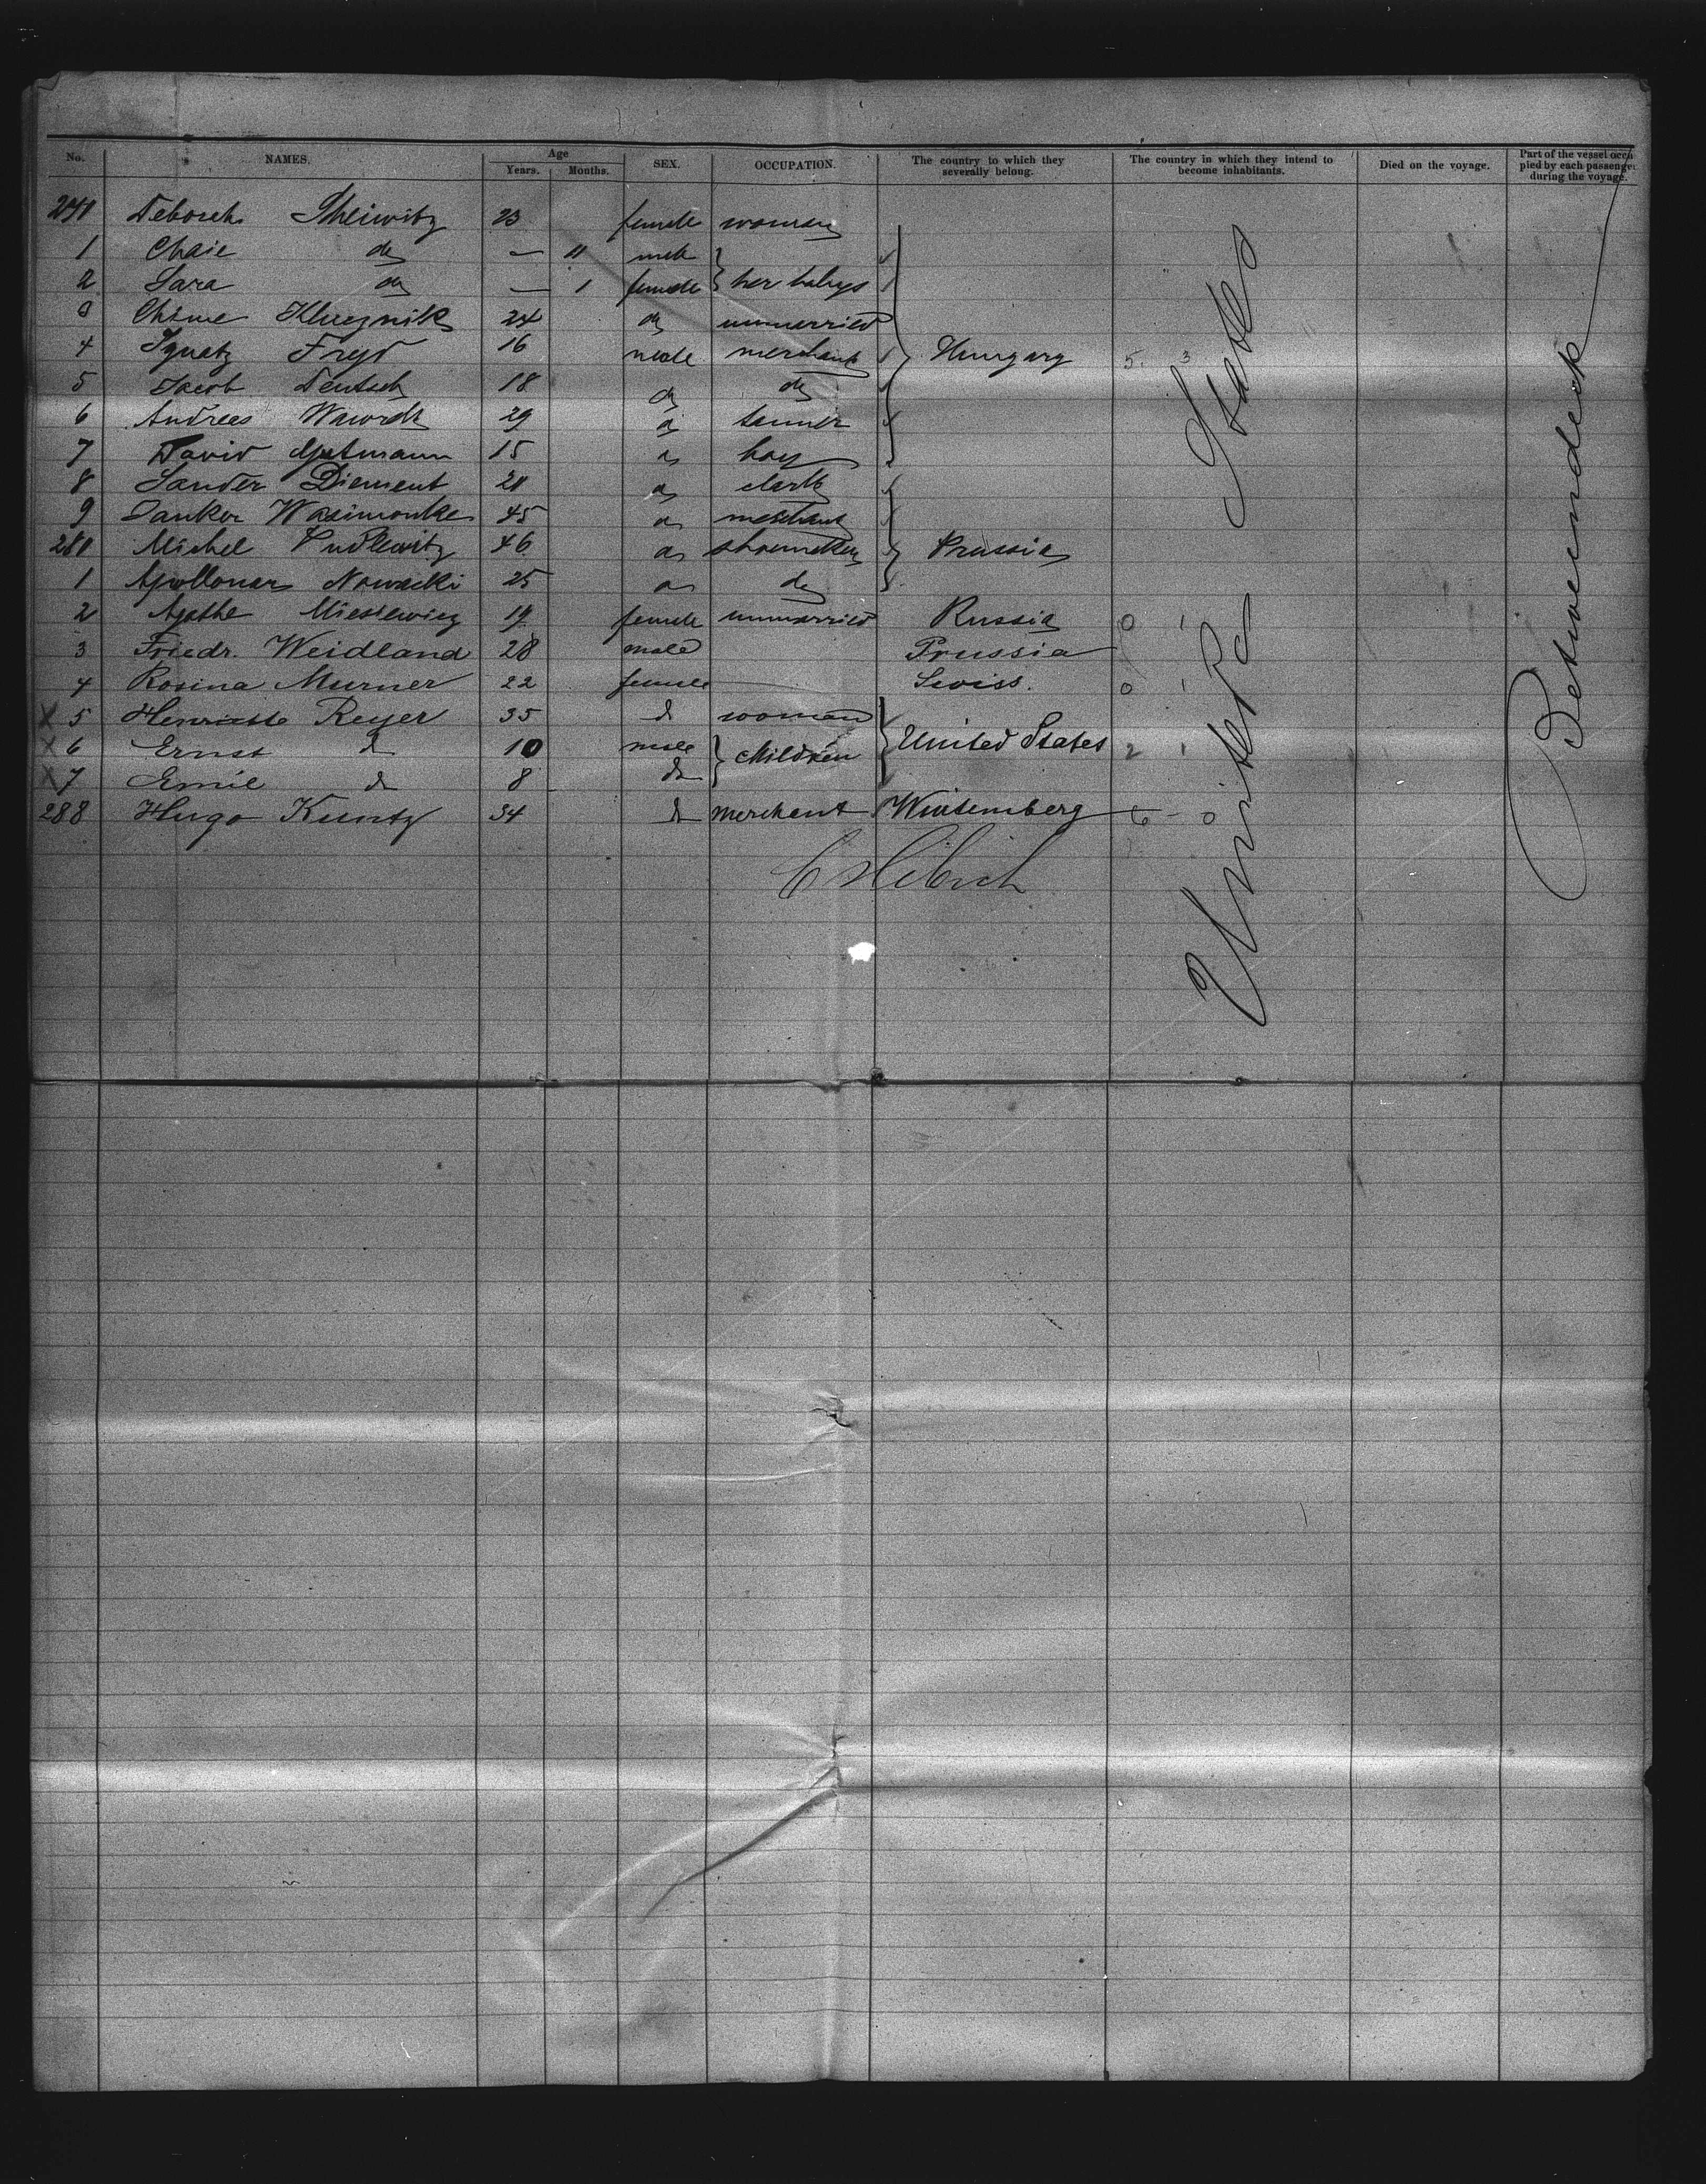 No. NAMES. Age Years. Months. SEX. OCCUPATION. The country to which they severally belong. The country in which they intend to become inhabitants. Died on the voyage. Part of the vessel occupied by each passenger during the voyage.
Deborah 23 female woman
1 Chaie do — 11 male
2 Sara do — 1 female her babys
3 24 do unmarried
4 Ignatz Freyd 16 male merchant Hungary 5. 3
5 Jacob Deutsch 18 do do
6 Andrees 29 do tanner
7 David Gutmann 15 do boy
8 Sander Diement 20 do clerk
9 45 do merchant
280 Michel Pudlewitz 46 do shoemaker Prussia
1 Nowacki 25 do do
2 Agathe 19 female unmarried Russia 0 1
3 Friedr. Weidland 28 male Prussia
4 Rosina Murner 22 female Swiss. 0 1
X 5 Henriette Reyer 35 d woman United States
X 6 Ernst d 10 male children 2 1
X 7 Emil d 8 do
288 Hugo Kuntz 34 d merchant Wurtemberg 6 - 0
United States
Betweendeck